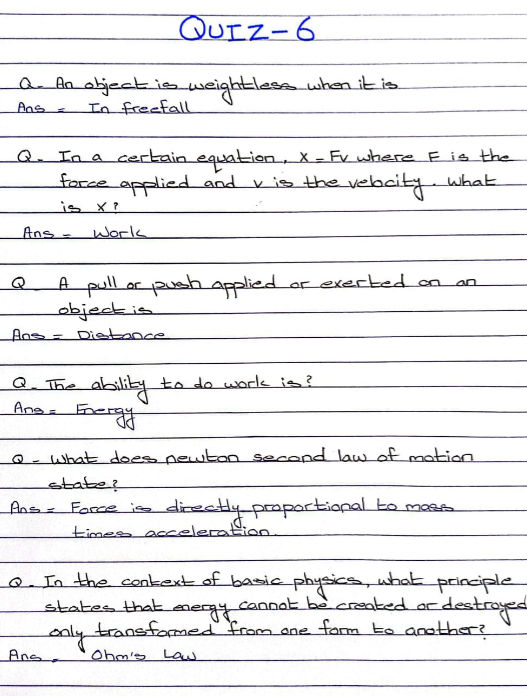 QUIZ-6
Q- An object is weightless when it is
Ans = In freefall
Q- In a certain equation, x = Fv where F is the
force applied and v is the velocity. what
is x?
Ans = Work
Q A pull or push applied or exerted on an
object is
Ans = Distance
Q- The ability to do work is?
Ans = Energy
Q- what does newton second law of motion
state?
Ans = Force is directly proportional to mass
times acceleration.
Q- In the context of basic physics, what principle
states that energy cannot be created or destroyed
only transformed from one form to another?
Ans = Ohm's Law